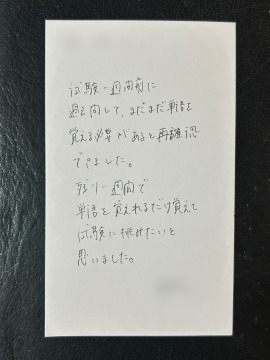 試験一週間前に
過去問して、まだまだ単語を
覚える必要があると再確認
できました。
残り一週間で
単語を覚えれるだけ覚えて
試験に挑みたいと
思いました。